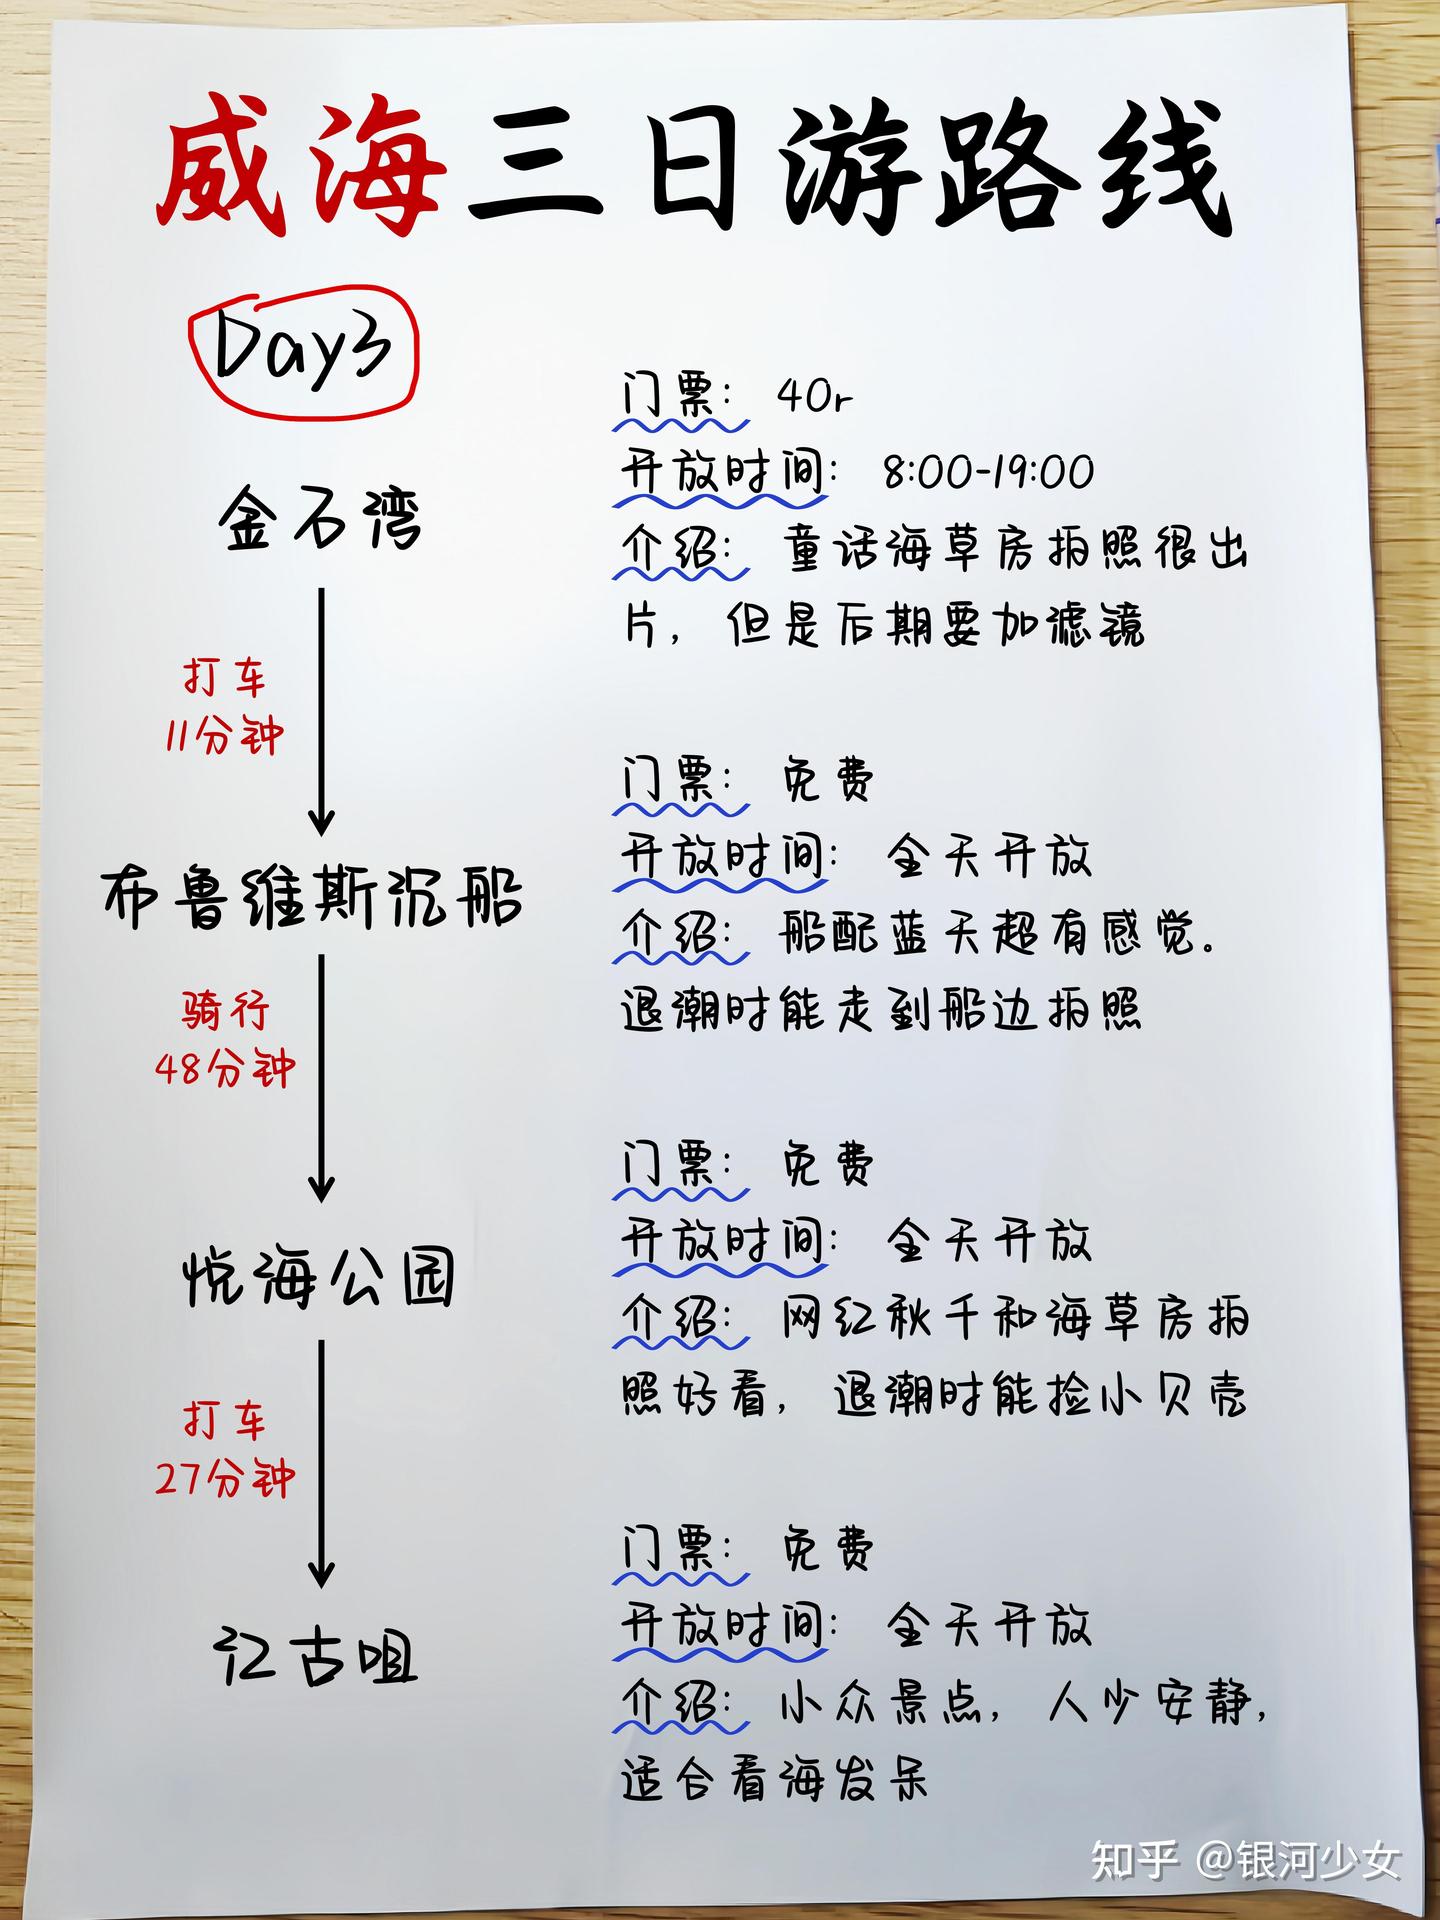 威海三日游路线
Day3
金石湾
门票： 40r
开放时间： 8:00-19:00
介绍： 童话海草房拍照很出
片，但是后期要加滤镜
打车
11分钟
布鲁维斯沉船
门票： 免费
开放时间： 全天开放
介绍： 船配蓝天超有感觉。
退潮时能走到船边拍照
骑行
48分钟
悦海公园
门票： 免费
开放时间： 全天开放
介绍： 网红秋千和海草房拍
照好看，退潮时能捡小贝壳
打车
27分钟
江古咀
门票： 免费
开放时间： 全天开放
介绍： 小众景点，人少安静，
适合看海发呆
知乎 @银河少女